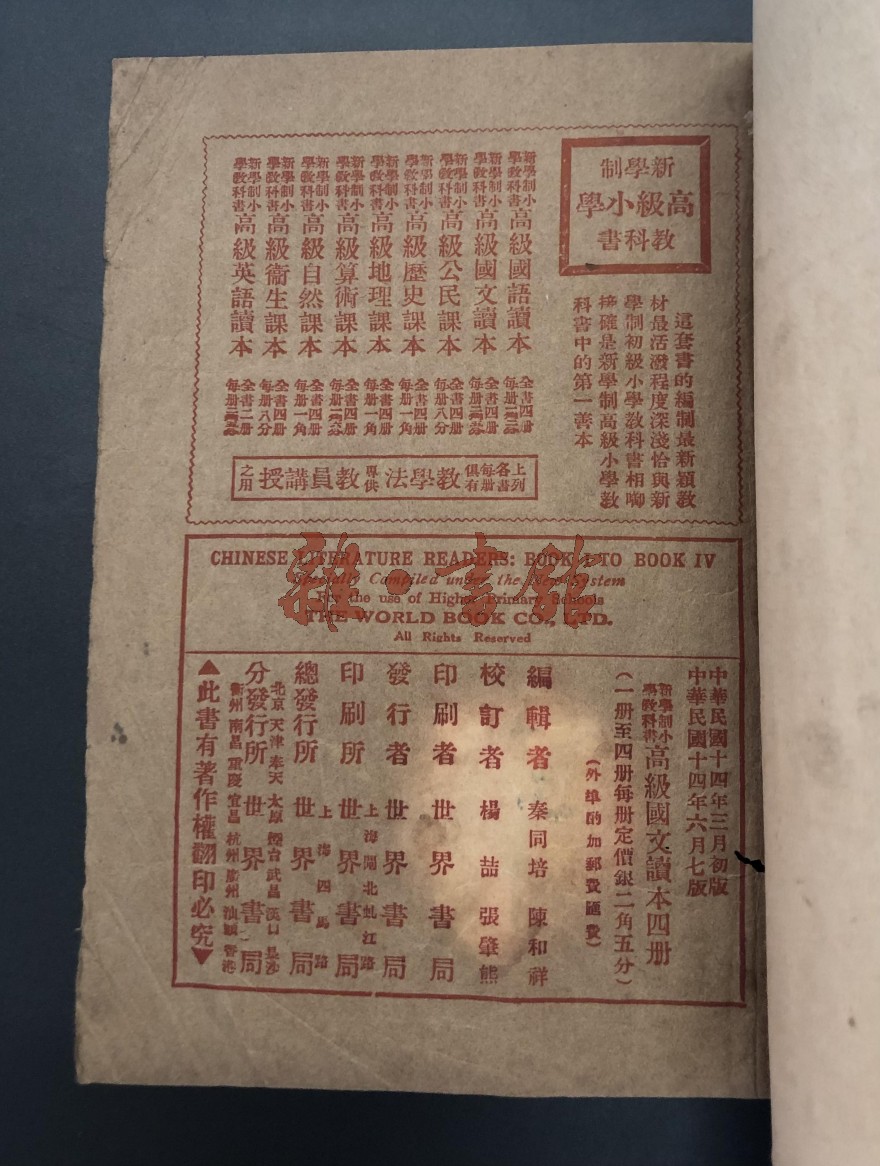 新學制
高級小學
教科書
這套書的編制最新穎教
材最活潑程度深淺恰與新
學制初級小學教科書相啣
接確是新學制高級小學教
科書中的第一善本
新學制小學教科書高級國語讀本 全書四冊
新學制小學教科書高級國文讀本 全書四冊
新學制小學教科書高級公民課本 全書四冊每冊八分
新學制小學教科書高級歷史課本 全書四冊每冊一角
新學制小學教科書高級地理課本 全書四冊每冊一角
新學制小學教科書高級算術課本 全書四冊
新學制小學教科書高級自然課本 全書四冊每冊一角
新學制小學教科書高級衞生課本 全書四冊每冊八分
新學制小學教科書高級英語讀本 全書二冊
上列各書每冊俱有教學法專供教員講授之用
CHINESE LITERATURE READERS: BOOK I TO BOOK IV
Specially Compiled under the New System
For the use of Higher Primary Schools
THE WORLD BOOK CO., LTD.
All Rights Reserved
中華民國十四年三月初版
中華民國十四年六月七版
新學制小學教科書高級國文讀本四冊
(一册至四册每册定價銀二角五分)
(外埠酌加郵費匯費)
編輯者 秦同培 陳和祥
校訂者 楊喆 張肇熊
印刷者 世界書局
發行者 世界書局
印刷所 上海閘北虬江路 世界書局
總發行所 上海四馬路 世界書局
分發行所 北京 天津 奉天 太原 煙台 武昌 漢口 長沙 衡州 南昌 重慶 宜昌 杭州 廣州 汕頭 香港 世界書局
▲此書有著作權翻印必究▼
雜·書館